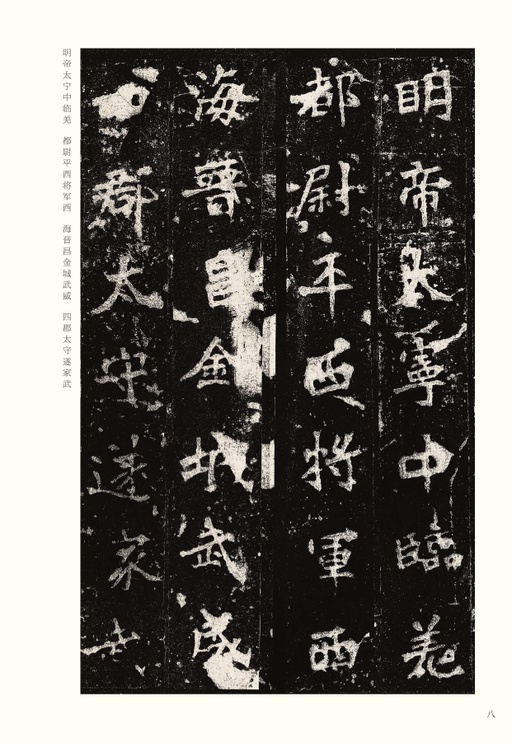 明帝太寧中臨羌
都尉平西將軍西
海晉昌金城武威
四郡太守遂家武
明帝太宁中临羌 都尉平西将军西 海晋昌金城武威 四郡太守遂家武
八